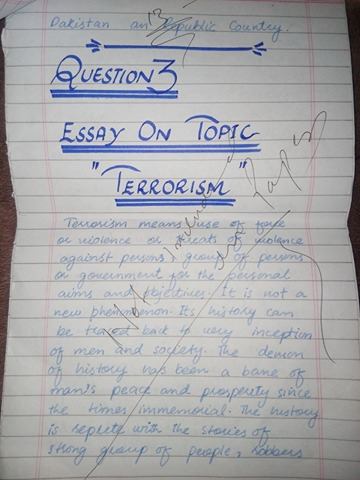 Pakistan an Republic Country.
13
QUESTION 3
ESSAY ON TOPIC
"TERRORISM"
Terrorism means use of force
or violence or threats of violence
against persons, group of persons
or government for the personal
aims and objectives. It is not a
new phenomenon. Its history can
be traced back to very inception
of men and society. The demon
of history has been a bane of
man's peace and prosperity since
the times immemorial. The history
is replete with the stories of
strong group of people, robbers
Not
Paper